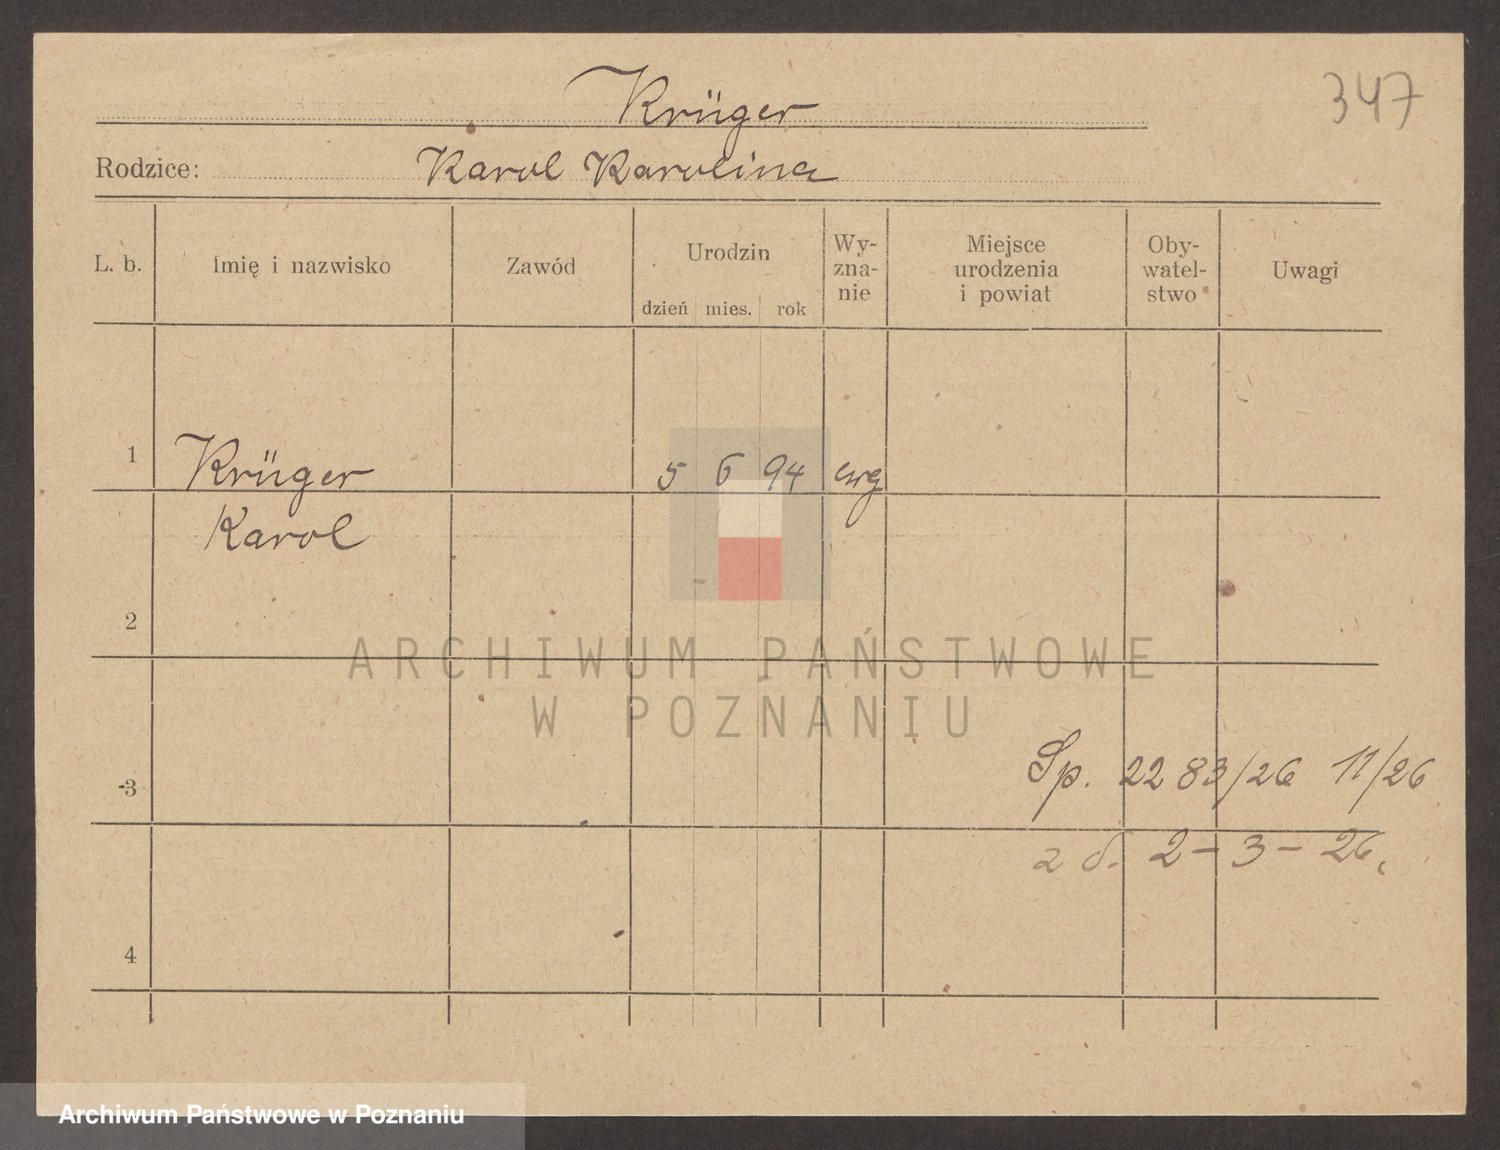 Krüger
347
Rodzice: Karol Karolina
L. b. Imię i nazwisko Zawód Urodzin dzień mies. rok Wy-zna-nie Miejsce urodzenia i powiat Oby-watel-stwo Uwagi
1 Krüger 5 6 94 ewg
Karol
2
ARCHIWUM PAŃSTWOWE
W POZNANIU
3 Sp. 2283/26 11/26
2-3-26.
4
Archiwum Państwowe w Poznaniu